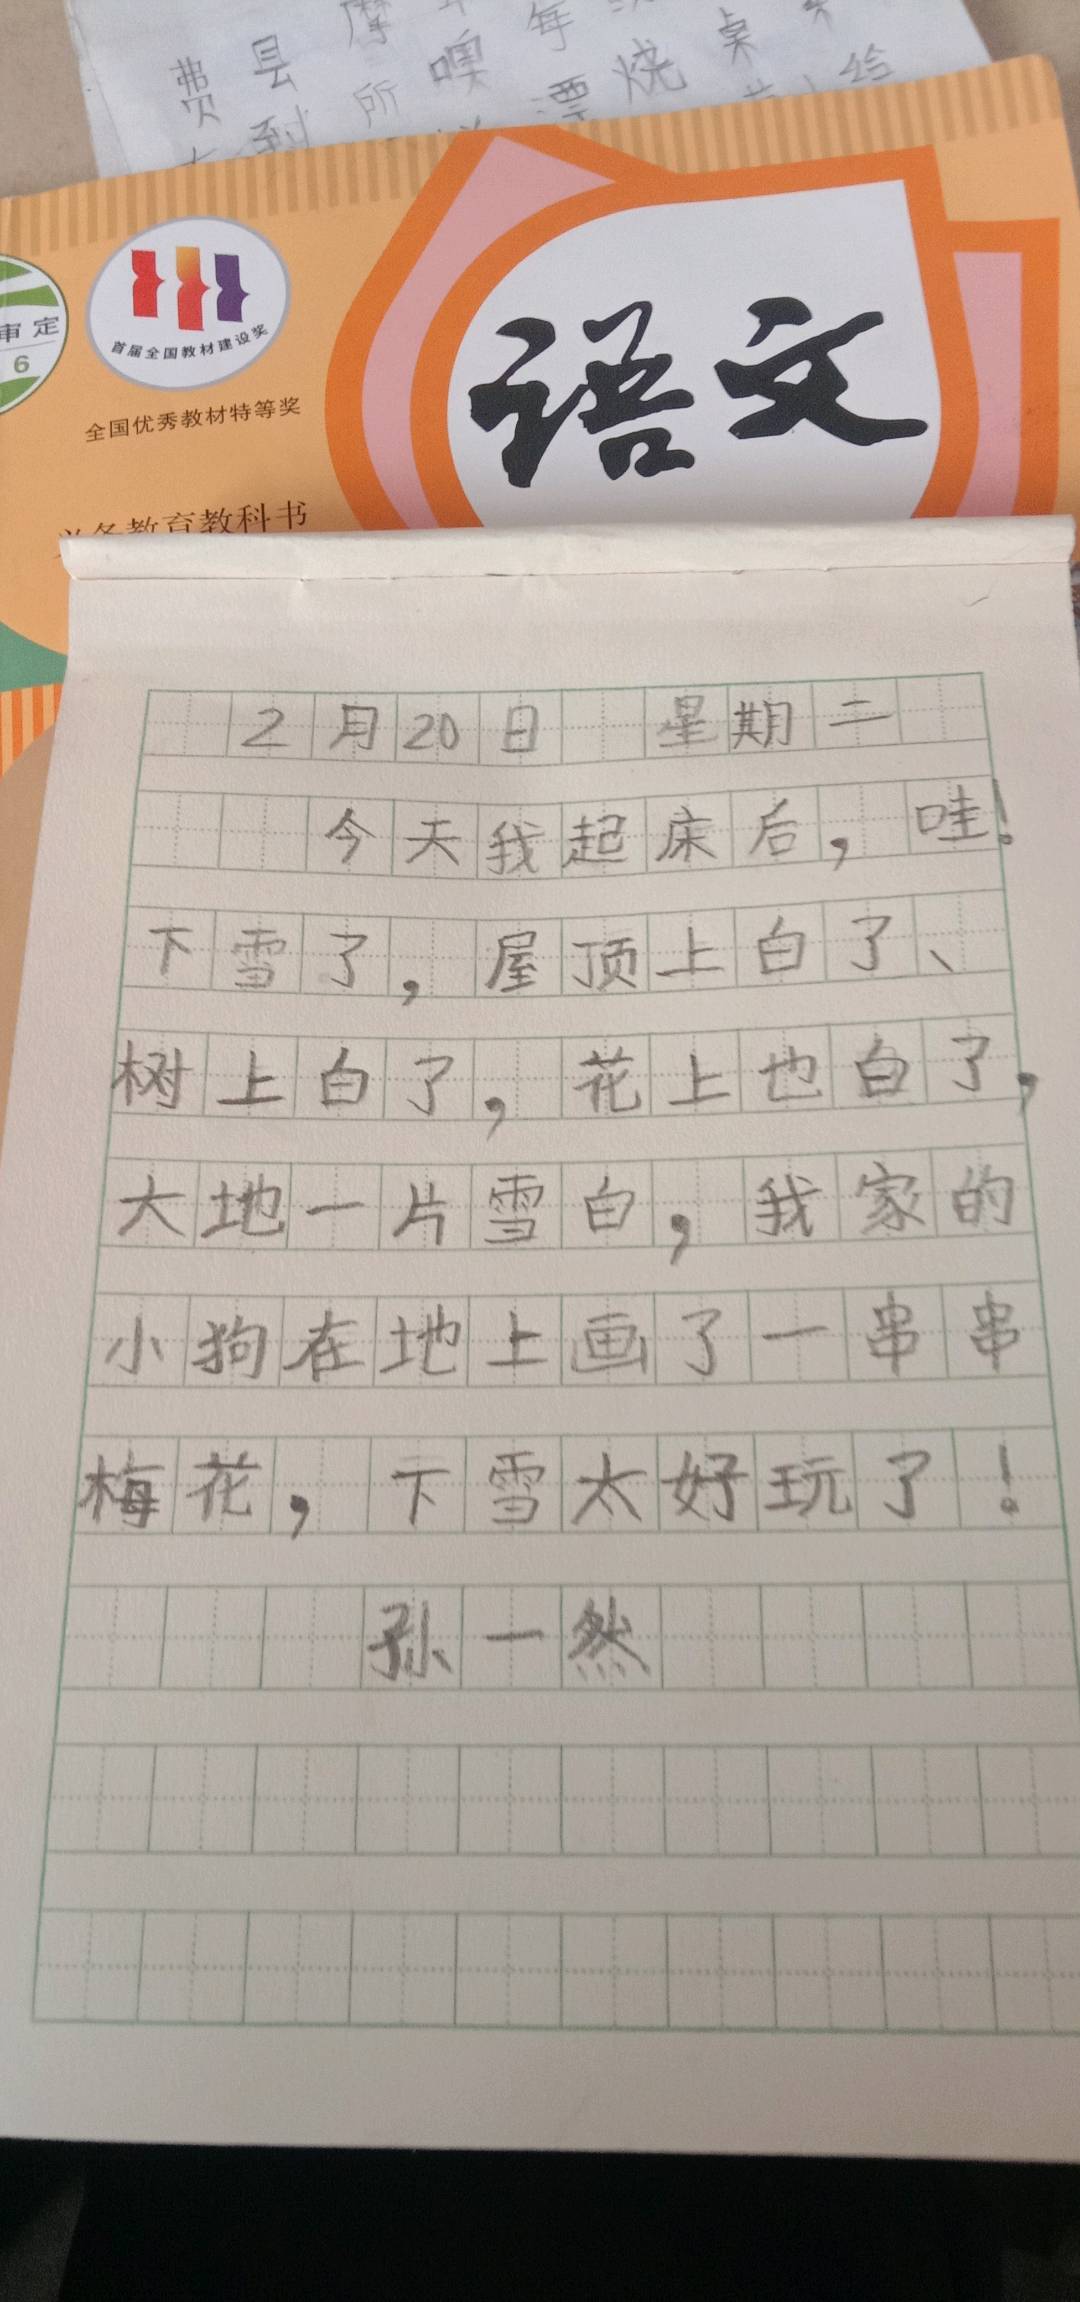 费县
到所噢每
漂烧桌
给
审定
6
首届全国教材建设奖
全国优秀教材特等奖
义务教育教科书
语文
2月20日 星期二
今天我起床后，哇！
下雪了，屋顶上白了、
树上白了，花上也白了，
大地一片雪白，我家的
小狗在地上画了一串串
梅花，下雪太好玩了！
孙一然